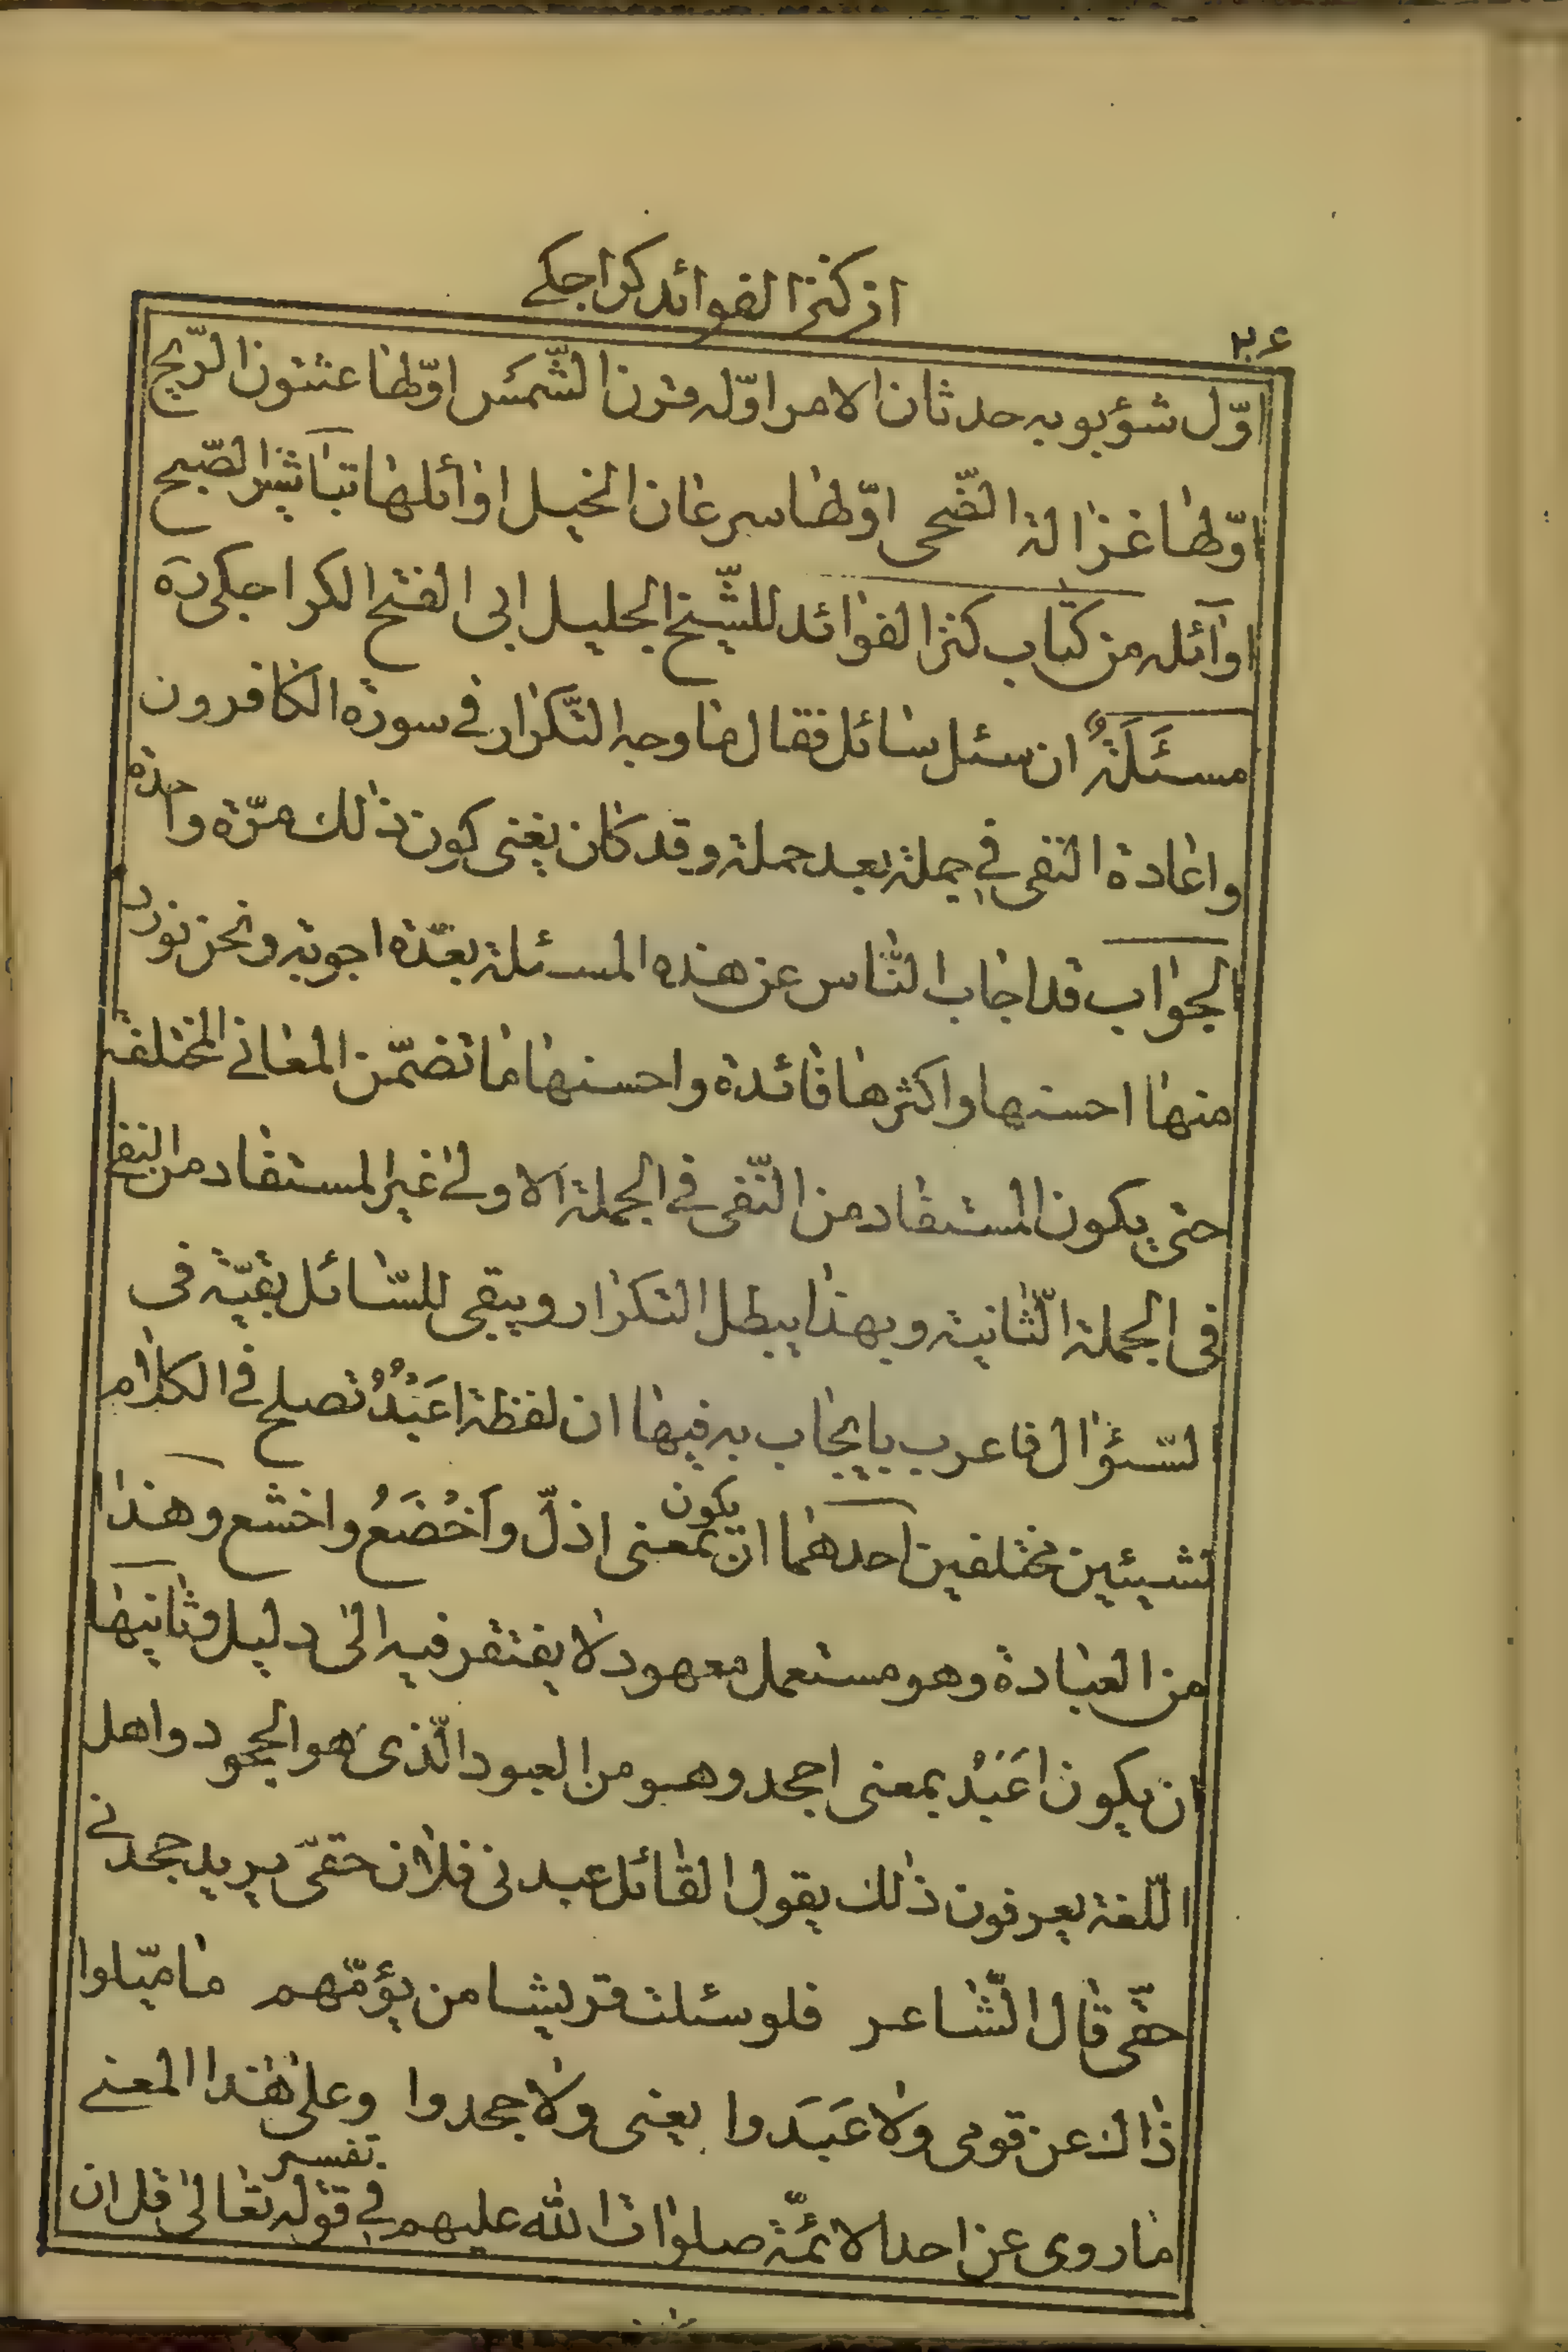 از كنز الفوائد كراجكے
٢٠٤
اوّل شؤبوبه حدثان الامر اوّله قرن الشّمس اوّلها عثنون الرّيح
اوّلها غزالة الضّحى اوّلها سرعان الخيل اوائلها تباشير الصّبح
اوآئله من كتاب كنز الفوائد للشّيخ الجليل ابى الفتح الكراجكى ره
مسئَلَةٌ ان سئل سائل فقال ما وجه التّكرار في سورة الكافرون
واعادة النفى في جملة بعد جملة وقد كان يغنى كون ذلك مرّة واحدة
الجواب قد اجاب النّاس عن هذه المسئلة بعدّة اجوبة ونحن نورد
منها احسنها واكثرها فائدة واحسنها ما تضمّن المعانى المختلفة
حتى يكون المستفاد من النّفى في الجملة الاولى غير المستفاد من النفى
فى الجملة الثّانية وبهذا يبطل التكرار ويبقى للسّائل بقيّة فى
السّئوال فاعرب بايجاب به فيها ان لفظة اعَبْدُ تصلح في الكلام
لشيئين مختلفين احدهما ان يكون بمعنى اذلّ واَخْضَعُ واخشع وهذا
من العبادة وهو مستعمل معهود لا يفتقر فيه الى دليل وثانيها
ان يكون اعَبْد بمعنى اجحد وهو من العبود الّذى هو الجحود واهل
اللّغة يعرفون ذلك يقول القائل عبدنى فلان حقىّ يريد جحدنى
حقّى قال الشّاعر فلو سئلت قريشا من يؤمّهم ما ميّلوا
ذاك عن قومى ولا عَبَدوا يعنى ولا جحدوا وعلى هذا المعنے
ما روى عن احد الائمّة صلوات الله عليهم في تفسير قوله تعالى قل ان